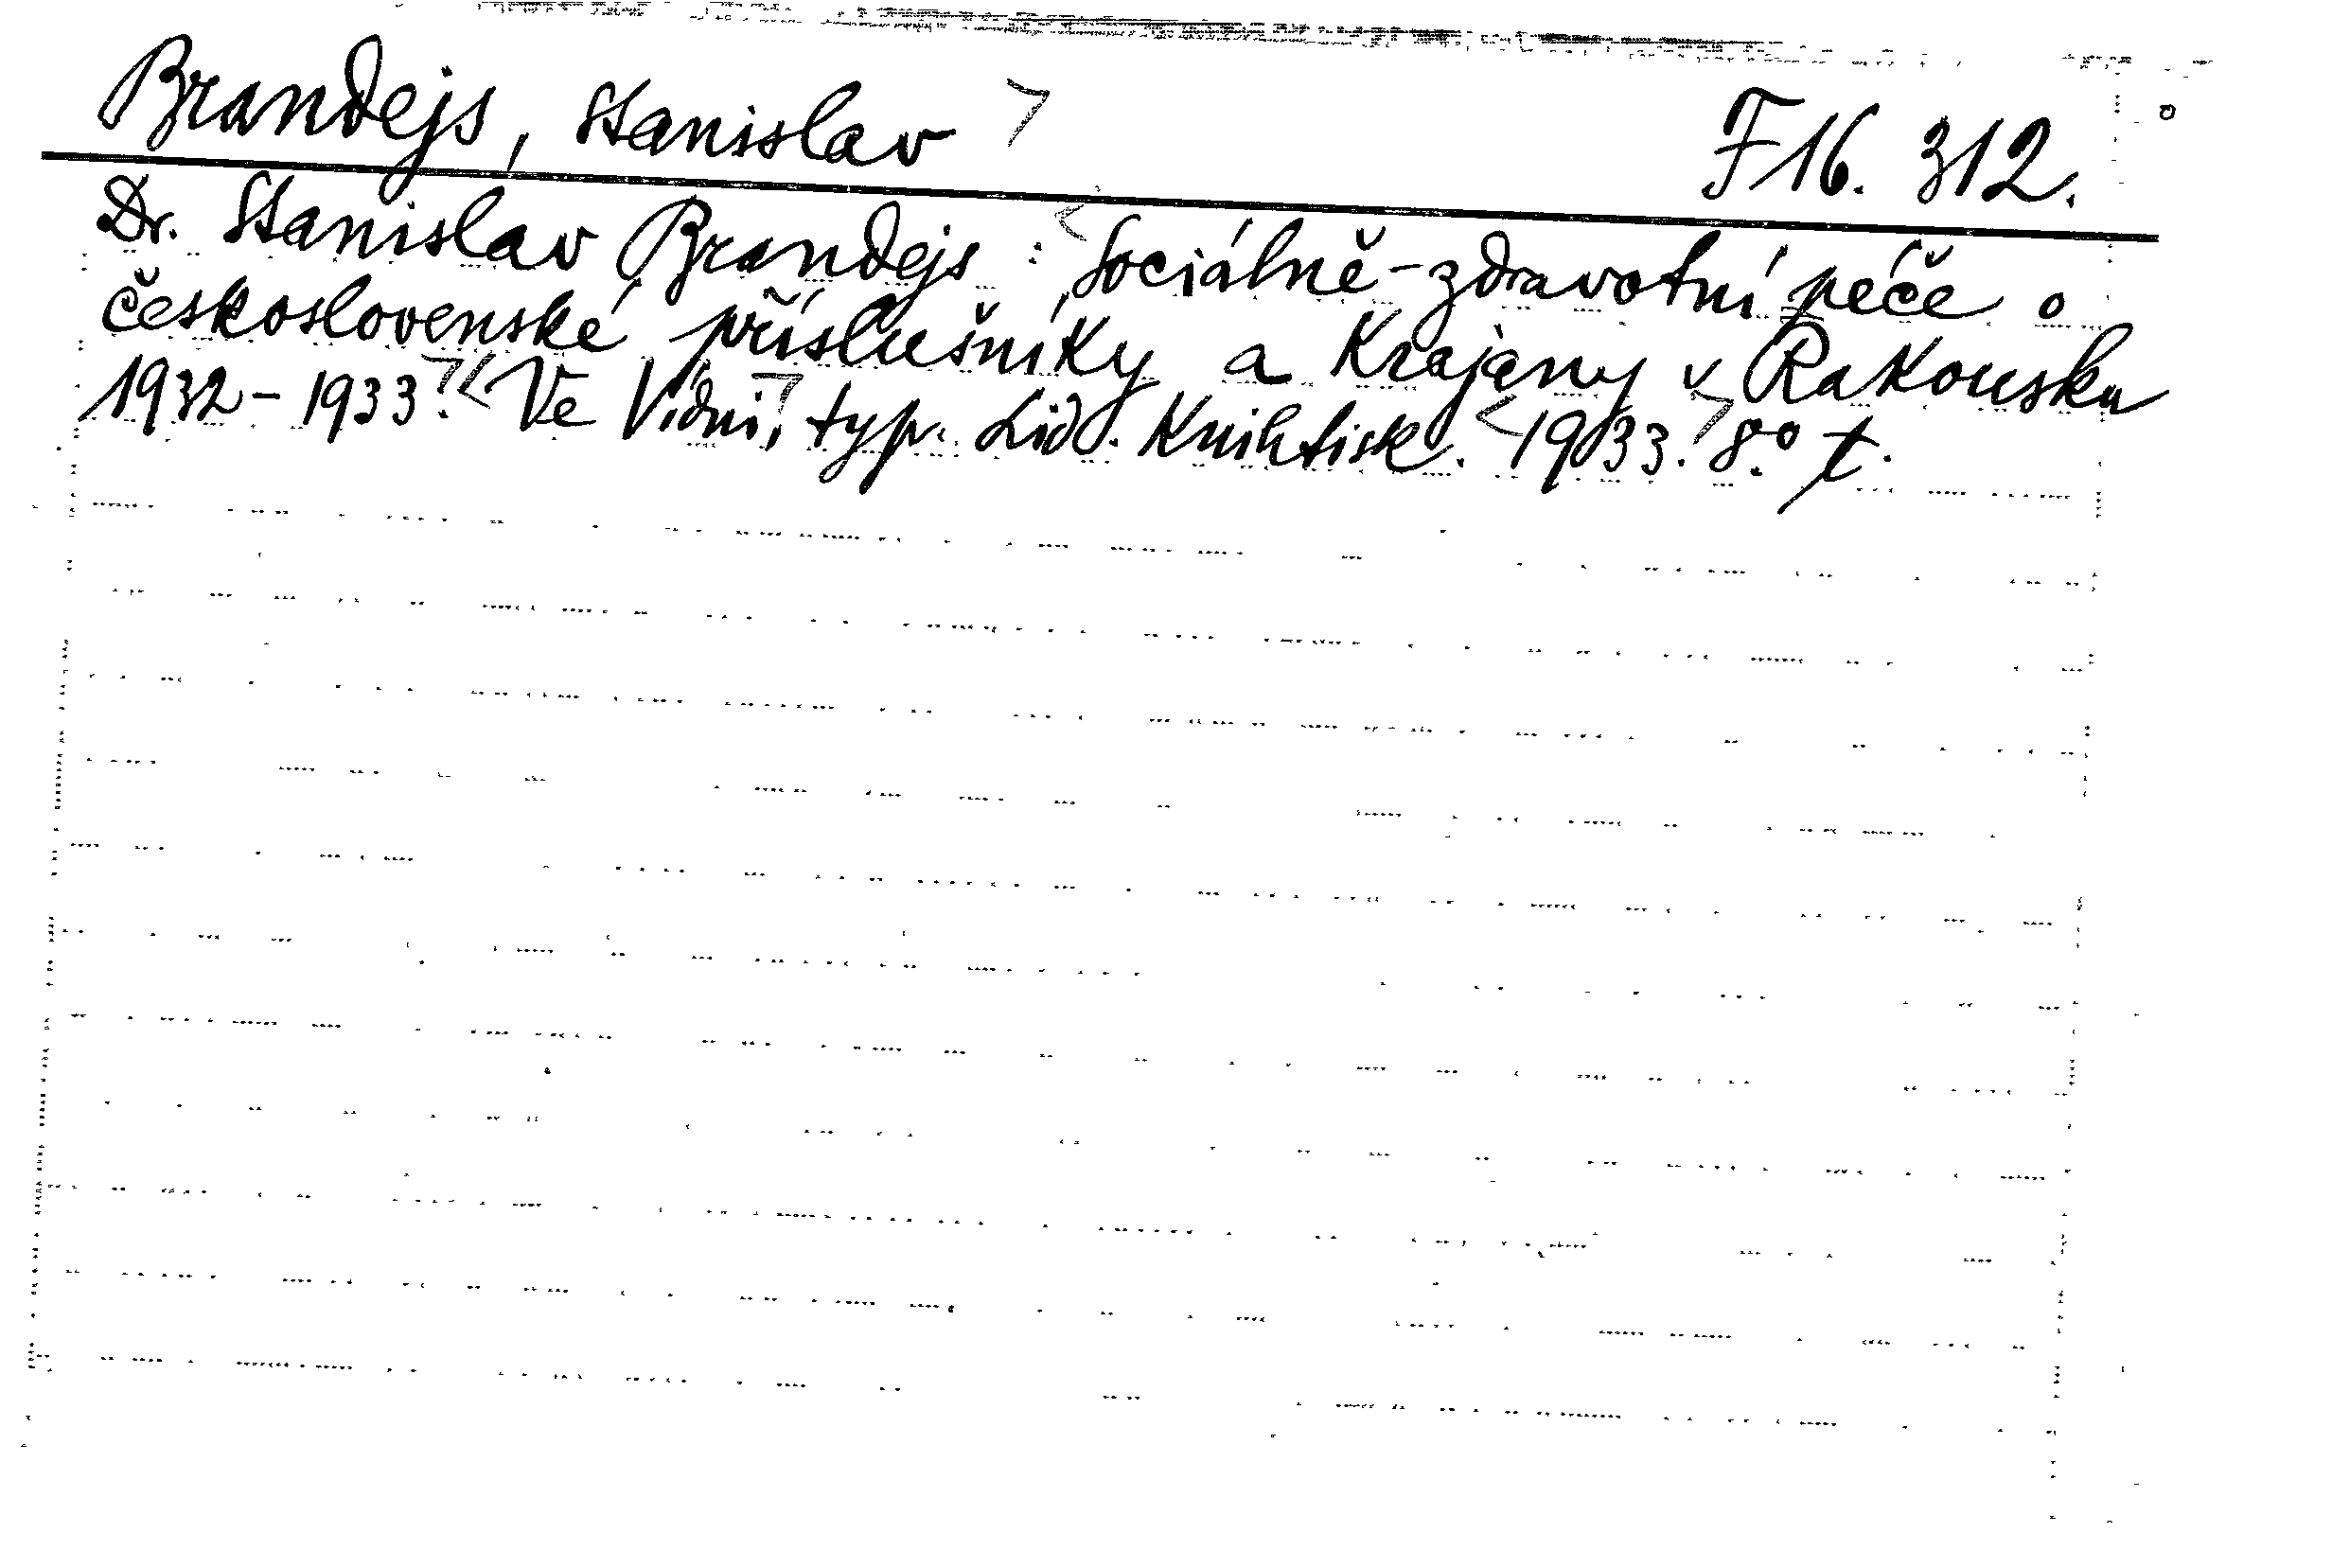 Brandejs, Stanislav F 16. 312.
Dr. Stanislav Brandejs : Sociálně-zdravotní péče o
československé příslušníky a krajany v Rakousku
1932-1933. Ve Vídni, typ. Lid. Knihtisk. 1933. 8.° t.